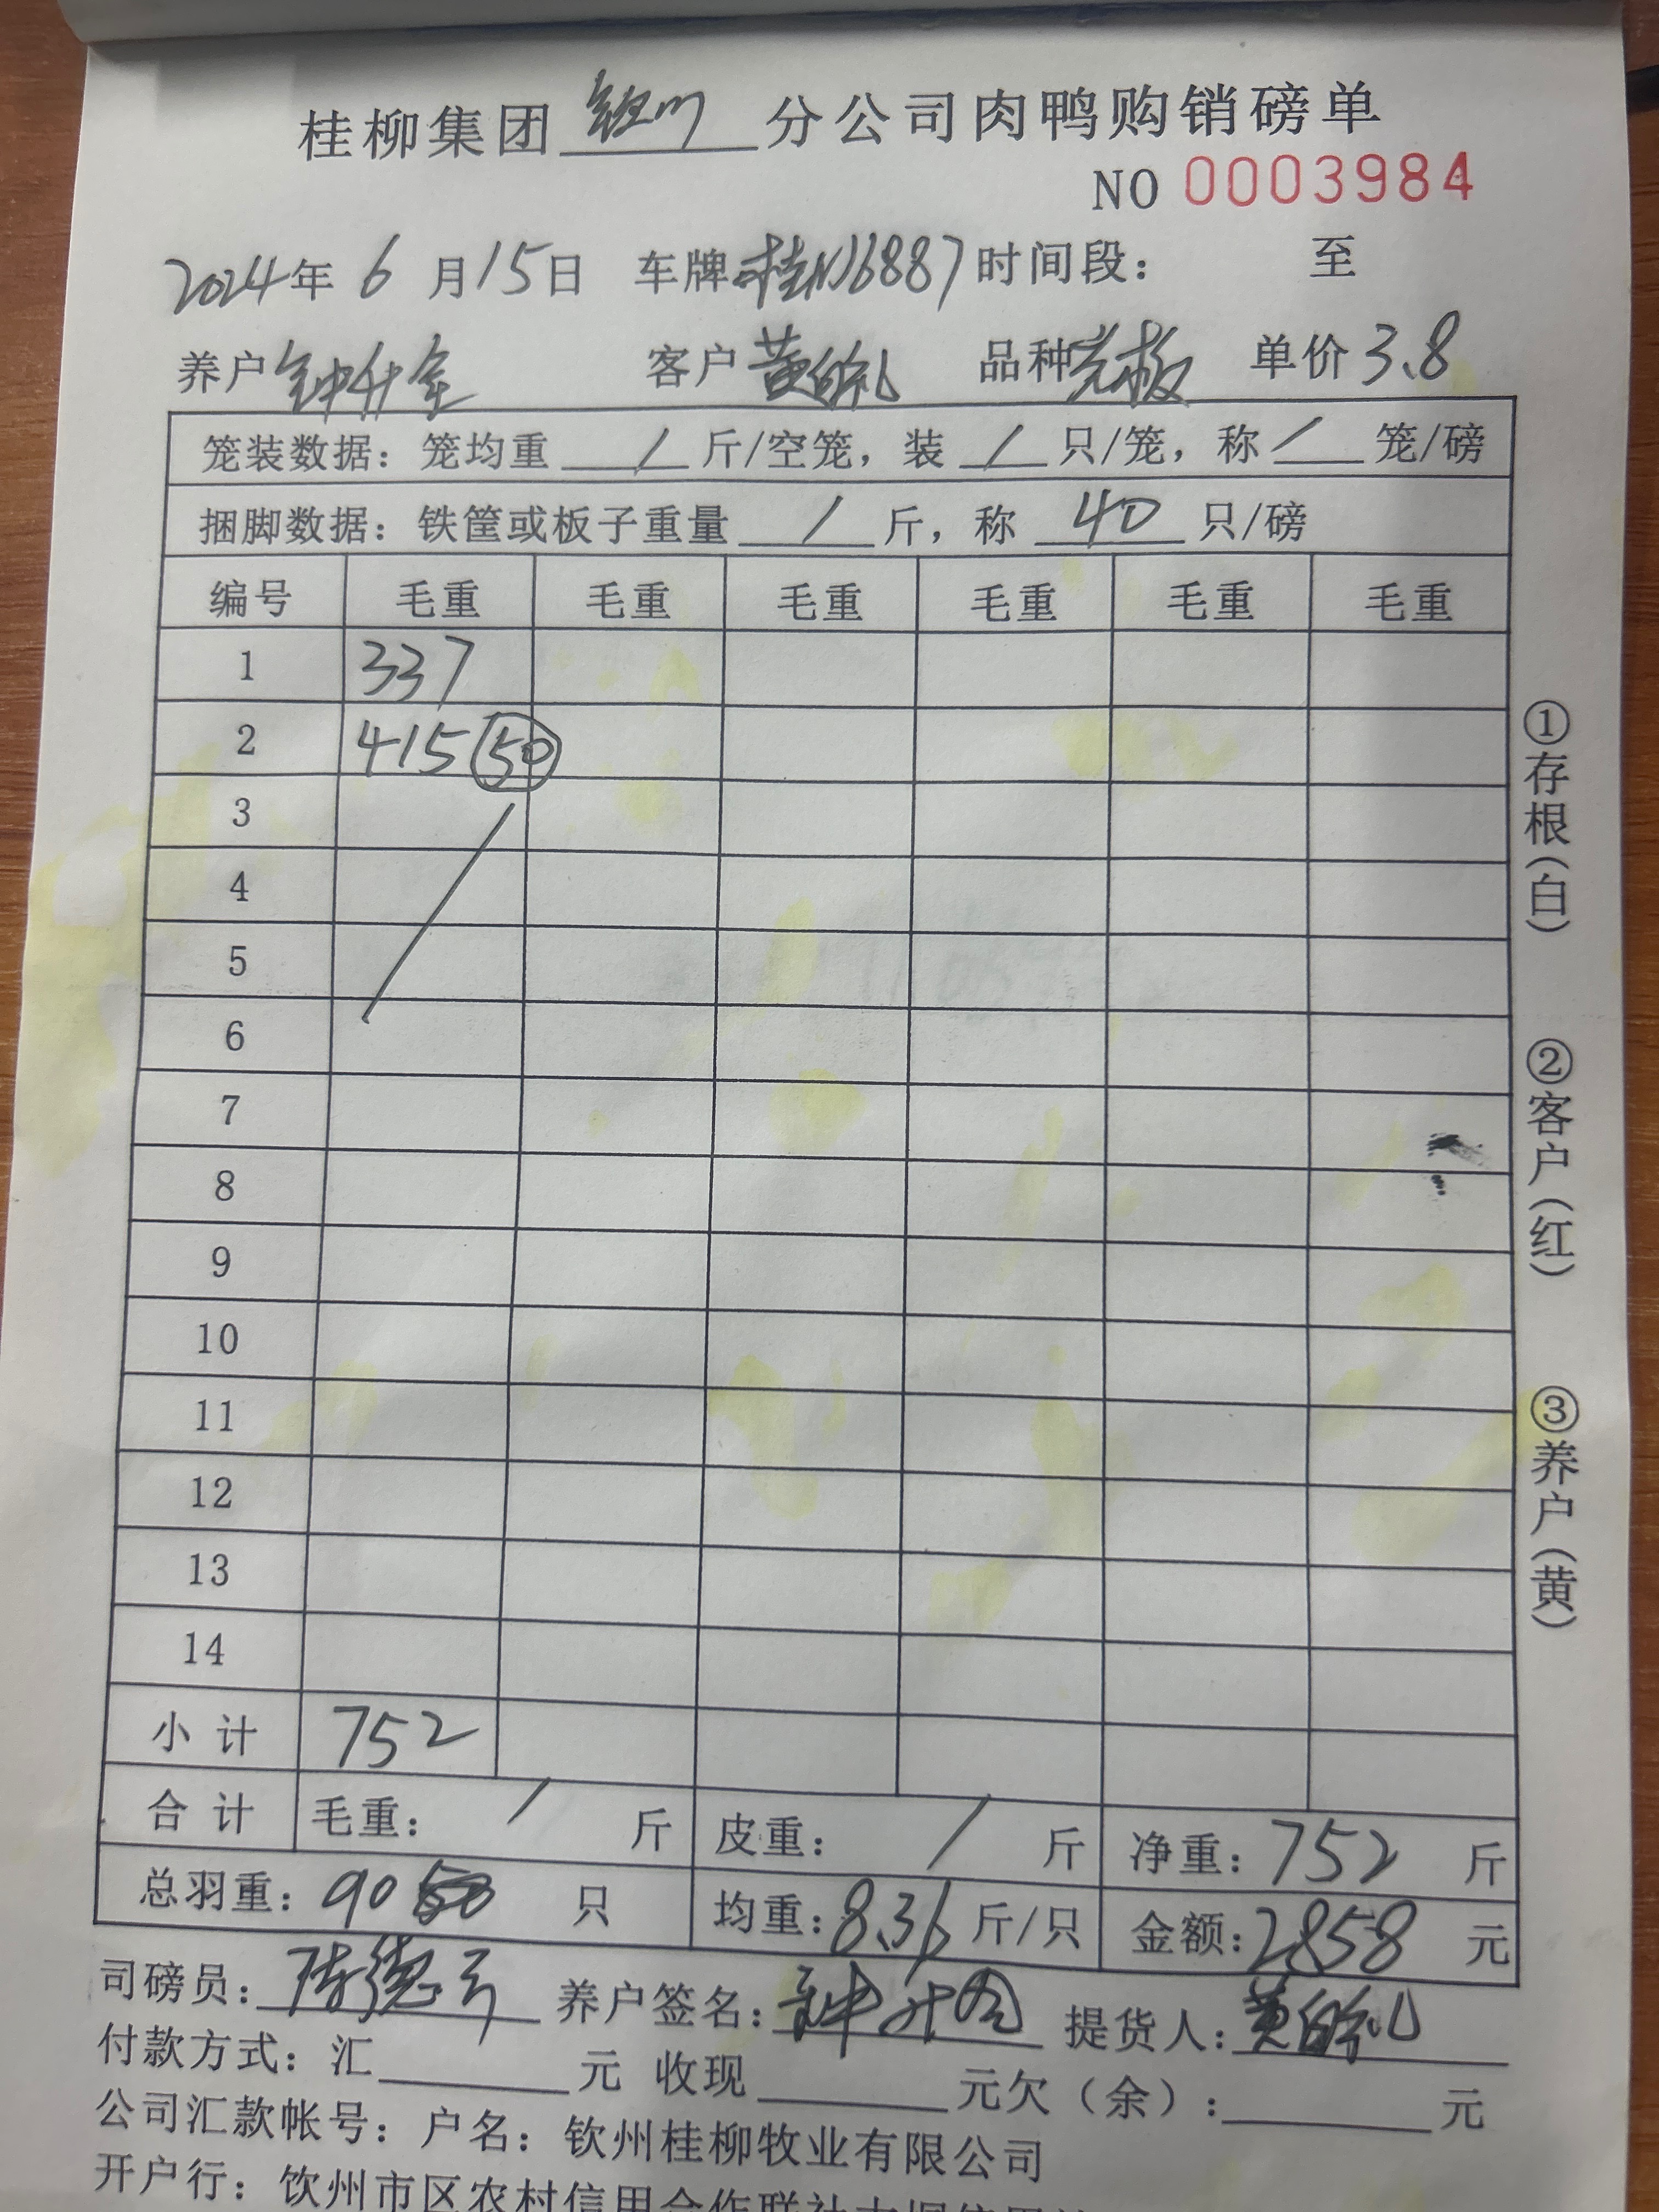 桂柳集团 钦州 分公司肉鸭购销磅单
NO 0003984
2024年 6 月 15日 车牌:桂N16887 时间段： 至
养户 钟升金 客户 黄的礼 品种 光板 单价 3.8
笼装数据：笼均重 / 斤/空笼，装 / 只/笼，称 / 笼/磅
捆脚数据：铁筐或板子重量 / 斤，称 40 只/磅
编号 毛重 毛重 毛重 毛重 毛重 毛重
1 337
2 415 50
3
4
5
6
7
8
9
10
11
12
13
14
小计 752
合计 毛重： / 斤 皮重： / 斤 净重：752 斤
总羽重：90 只 均重：8.36 斤/只 金额：2858 元
司磅员： 养户签名：钟升金 提货人：黄的礼
付款方式：汇 元 收现 元欠（余）： 元
公司汇款帐号：户名：钦州桂柳牧业有限公司
开户行：钦州市区农村信用合作联社
①存根（白）
②客户（红）
③养户（黄）